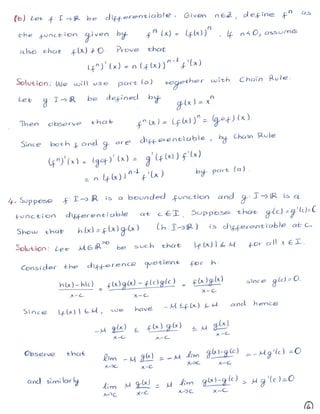 (b) Let f I→R be differentiable. Given n∈Z, define fⁿ as
the function given by fⁿ(x) = (f(x))ⁿ. If n<0, assume
also that f(x)≠0 Prove that
(fⁿ)'(x) = n(f(x))ⁿ⁻¹ f'(x)
Solution: We will use part (a) together with Chain Rule.
Let g I→R be defined by
g(x) = xⁿ
Then observe that fⁿ(x) = (f(x))ⁿ = (g∘f)(x).
Since both f and g are differentiable, by Chain Rule
(fⁿ)'(x) = (g∘f)'(x) = g'(f(x)) f'(x)
= n(f(x))ⁿ⁻¹ f'(x) by part (a).
4. Suppose f I→R is a bounded function and g: I→R is a
function differentiable at c∈I. Suppose that g(c)=g'(c)=0
Show that h(x)=f(x)g(x) (h I→R) is differentiable at c.
Solution: Let M∈R^{>0} be such that |f(x)|≤M for all x∈I.
Consider the difference quotient for h.
h(x)-h(c) / x-c = f(x)g(x)-f(c)g(c) / x-c = f(x)g(x) / x-c since g(c)=0.
Since |f(x)|≤M, we have -M≤f(x)≤M and hence
-M g(x)/x-c ≤ f(x) g(x)/x-c ≤ M g(x)/x-c
Observe that lim x→c -M g(x)/x-c = -M lim x→c g(x)-g(c)/x-c = -Mg'(c) = 0
and similarly lim x→c M g(x)/x-c = M lim x→c g(x)-g(c)/x-c = Mg'(c)=0